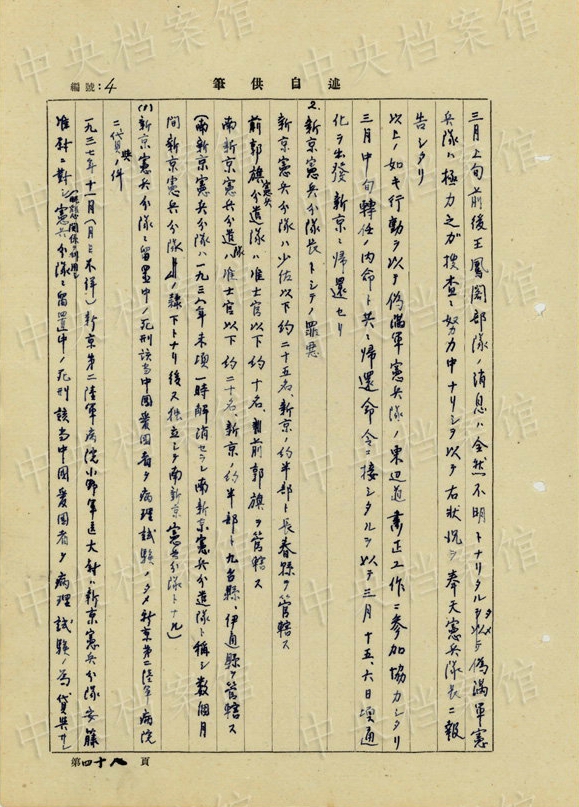 述自供筆
編號:4
三月上旬前後王鳳閣部隊ノ消息ハ全然不明トナリタルタメ偽満軍憲
兵隊ハ極力之カ捜査ニ努力中ナリシヲ以テ右状況ヲ奉天憲兵隊長ニ報
告シタリ
以上ノ如キ行動ヲ以テ偽満軍憲兵隊ノ東辺道粛正工作ニ参加協力シタリ
三月中旬轉任ノ内命ト共ニ帰還命令ニ接シタルヲ以テ三月十五、六日頃通
化ヲ出発新京ニ帰還セリ
2. 新京憲兵分隊長トシテノ罪悪
新京憲兵分隊ハ少佐以下約二十五名、新京ノ約半部ト長春縣ヲ管轄ス
前郭旗憲兵分遣隊ハ准士官以下約十名、前郭旗ヲ管轄ス
南新京憲兵分遣隊ハ准士官以下約二十名、新京ノ約半部ト九台縣、伊通縣ヲ管轄ス
(南新京憲兵分隊ハ一九三八年末頃一時解消セラレ南新京憲兵分遣隊ト稱シ数個月
間新京憲兵分隊ノ隷下トナリ後又独立シテ南新京憲兵分隊トナル)
(1) 新京憲兵分隊ニ留置中ノ死刑該当中國愛國者ヲ病理試験ノタメ新京第二陸軍病院
ニ貸與ノ件
一九三七年十一月(月ニ不詳)新京第二陸軍病院小野軍医大尉ハ新京憲兵分隊安藤
准尉ニ對シ憲兵分隊ニ留置中ノ死刑該当中國愛國者ヲ病理試験ノ為貸與サレ
第四十八頁
中央档案馆